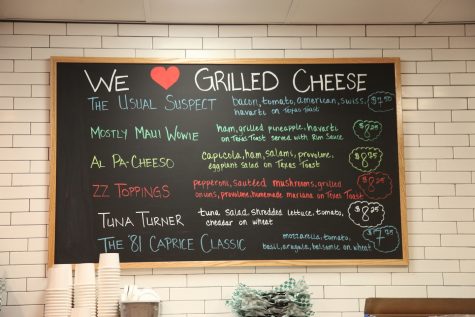 WE ♥ GRILLED CHEESE
THE USUAL SUSPECT bacon, tomato, american, swiss, $7.50
havarti on Texas Toast
MOSTLY MAUI WOWIE ham, grilled pineapple, havarti $8.25
on Texas Toast served with Rum Sauce
AL PA-CHEESO capicola, ham, salami, provolone, $8.25
eggplant salad on Texas Toast
ZZ TOPPINGS pepperoni, sautéed mushrooms, grilled $8.25
onions, provolone, homemade marinara on Texas Toast
TUNA TURNER tuna salad, shredded lettuce, tomato, $8.25
cheddar on wheat
THE '81 CAPRICE CLASSIC mozzarella, tomato, $7.25
basil, arugula, balsamic on wheat